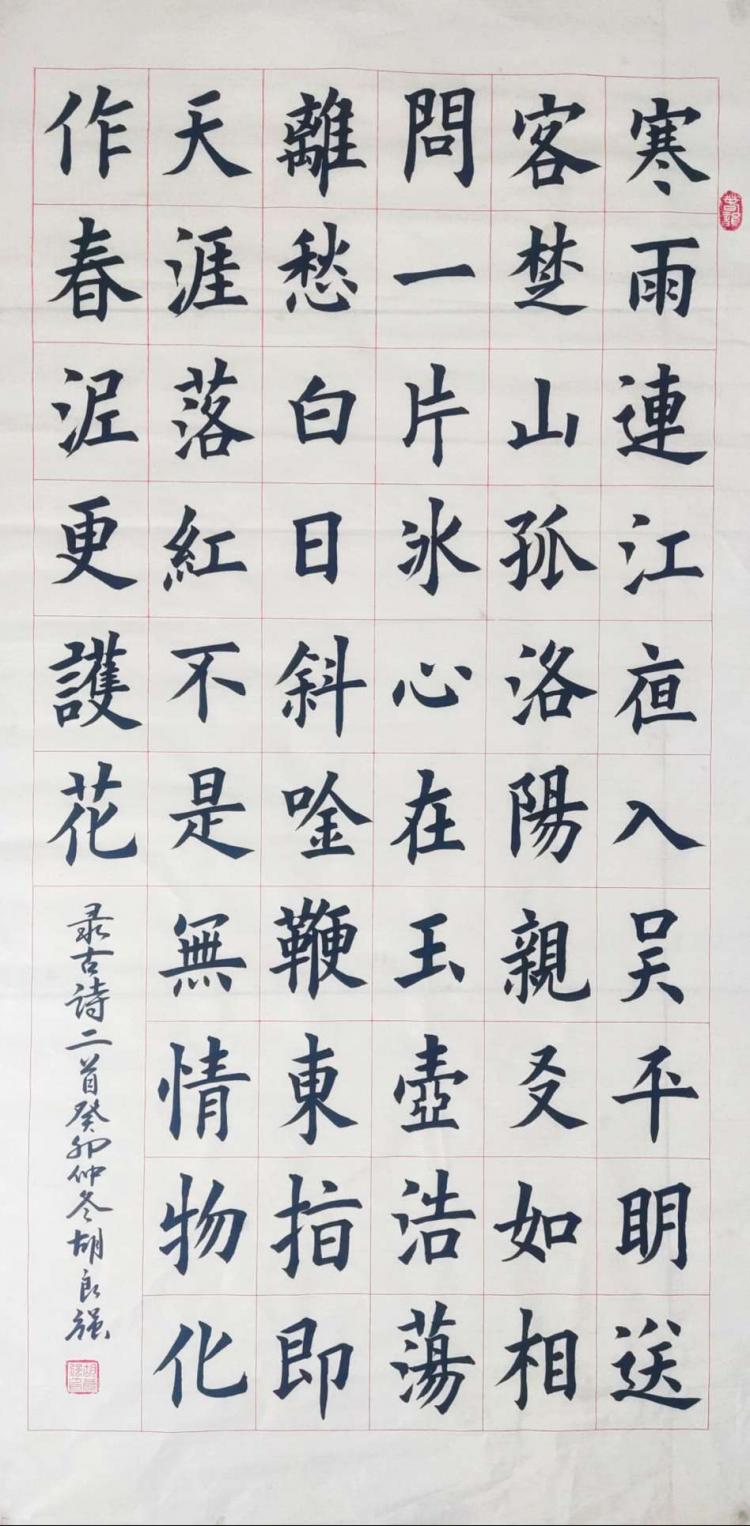 寒雨連江夜入吴平明送
客楚山孤洛陽親友如相
問一片氷心在玉壺浩蕩
離愁白日斜唫鞭東指即
天涯落紅不是無情物化
作春泥更護花
录古詩二首癸卯仲冬胡良强